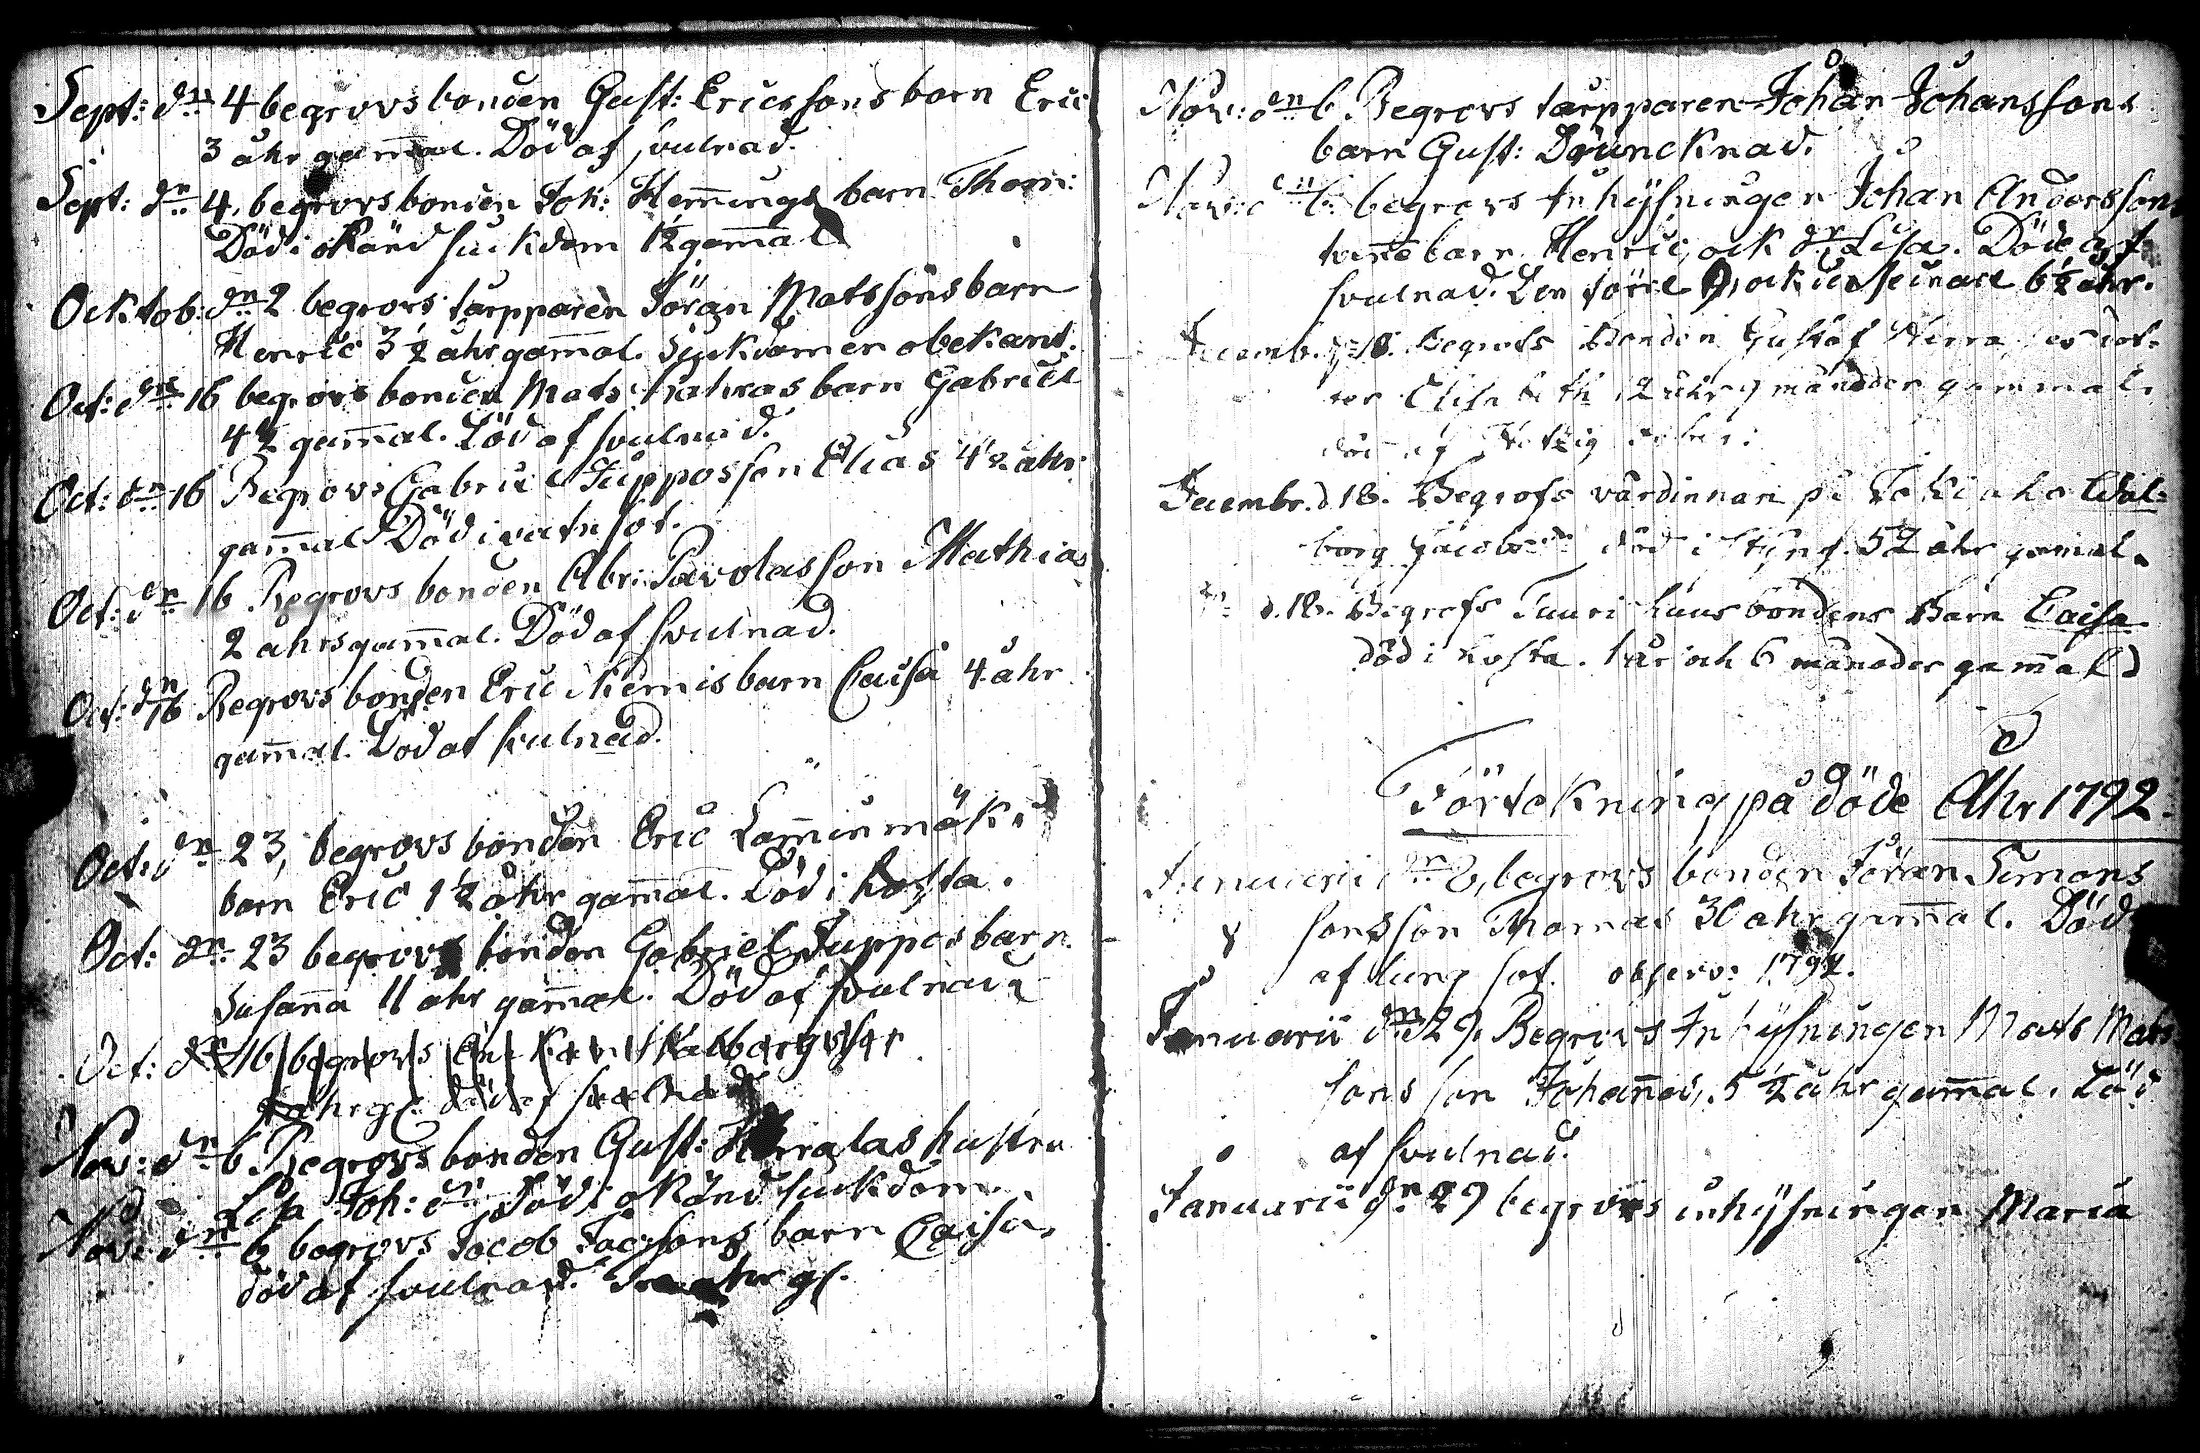 Sept: dn 4 begrovs bonden Gust: Ericssons barn Eric
3 åhr gam̅al. Död af svulnad.
Sept: dn 4, begrovs bonden Joh: Hem̅ings barn Thom:
Död i okänd siuckdom 1½ gam̅al
Ocktob: dn 2 begrovs tarpparen Jöran Matssons barn
Henric 3½ åhr gam̅al. Sjuckdomen obekant.
Oct: dn 16 begrovs bonden Mats barn Gabriel
4½ gam̅al. Död af svulnad.
Oct: dn 16 Begrovs Gabriel Juppos son Elias 4½ åhr
gam̅al Död i vatnsot.
Oct: dn 16 Begrovs bonden Abr: Pavolas son Mathias
2 åhrs gam̅al. Död af svulnad.
Oct: dn 16 Begrovs bonden Eric Niemis barn Caisa 4 åhr
gam̅al. Död af svulnad.
Oct: dn 23, begrovs bonden Eric Lam̅inmäki
barn Eric 1½ åhr gam̅al. Död i hosta.
Oct: dn 23 begrovs bonden Gabriel Juppos barn
Susan̅a 11 åhr gam̅al. Död af svulnad
Oct: dn 16 begrovs
åhr gl. död af svulnad
Nov: dn 6 Begrovs bonden Gust: hustru
Lisa Joh: dr Död i okänd siuckdom.
Nov: dn 6 begrovs Jacob Jacssons barn Caisa,
död af svulnad. åhr gl.
Nov: dn 6 Begrovs tarpparen Johan Johanssons
barn Gust: Drüncknad.
Nov: dn 6 begrovs Inhysningen Johan Anderssons
tven̅e barn Henric, ock dr Lisa. Döde af
svulnad. Den förre 9, ock den senare 6½ åhr.
Decemb. d. 18. Begrofs Bonden Gustaf dot-
ter Elisabeth 12 åhr 9 månader gammal.
död af
Decembr. d. 18. Begrofs värdinnan på Wal-
borg Jacobsdr död i styng. 52 åhr gam̅al.
d. 18. Begrofs Tuuri husbondens Barn Caisa
död i hosta. 1 år och 6 månader gam̅al
Förtekning på döde Åhr 1792.
Januarii dn 8, begrovs bonden Jöran Simons
sons son Thomas 30 åhr gam̅al. Död
af lungsot. observ: 1792.
Januarii dn 29, Begrovs Inhysningen Mats Mats
sons son Johan̅es, 5½ åhr gam̅al. Död
af svulnad.
Januarii dn 29 begrovs inhysningen Maria